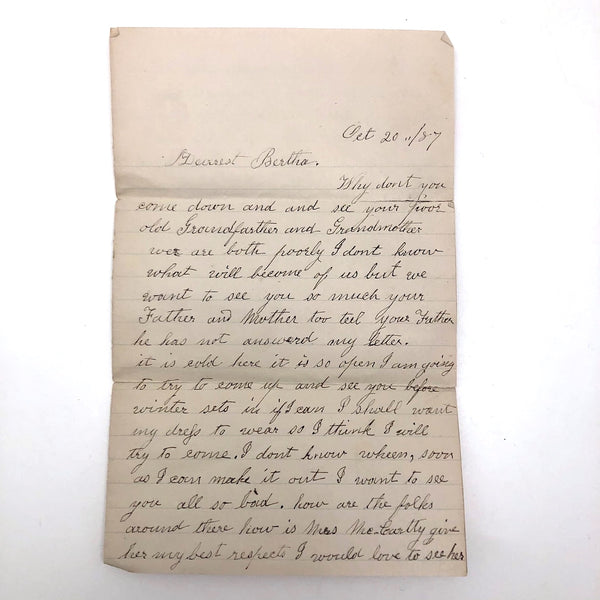 Oct 20 "/87
Dearest Bertha.
Why dont you
come down and and see your poor
old Grandfarther and Grandmother
wee are both poorly I dont know
what will become of us but we
want to see you so much your
Father and Mother too tell your Father
he has not answerd my letter.
it is cold here it is so open I am going
to try to come up and see you before
winter sets in if I can I shall want
my dress to wear so I think I will
try to come. I dont know wheen, soon
as I can make it out I want to see
you all so bad. how are the folks
around there how is Mrs Mc-Cartty give
her my best respects I would love to see her